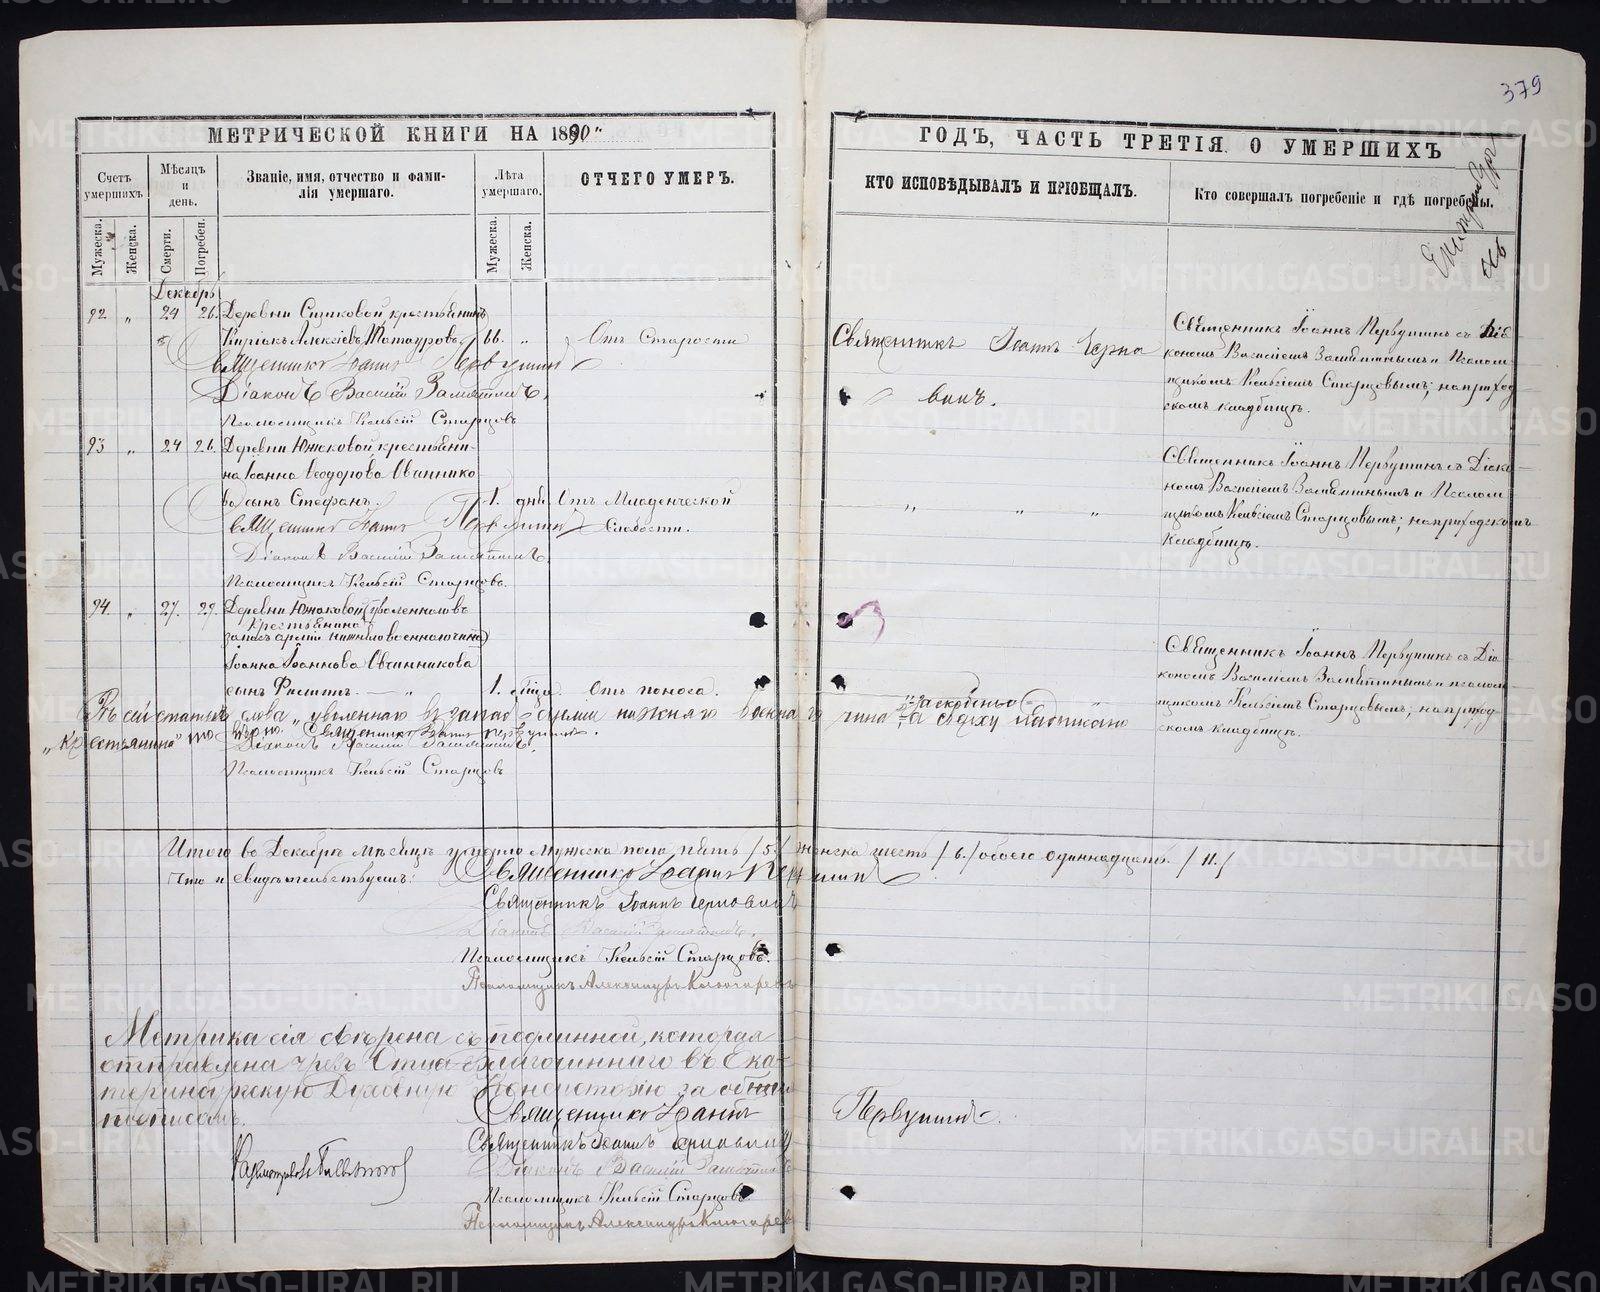 379
МЕТРИЧЕСКОЙ КНИГИ НА 1890"
ГОДЪ, ЧАСТЬ ТРЕТІЯ О УМЕРШИХЪ
Счетъ умершихъ.
Мѣсяцъ и день.
Званіе, имя, отчество и фами-
лія умершаго.
Лѣта умершаго.
ОТЧЕГО УМЕРЪ.
КТО ИСПОВѢДЫВАЛЪ И ПРІОБЩАЛЪ.
Кто совершалъ погребеніе и гдѣ погребены.
Мужеска.
Женска.
Смерти.
Погребен.
Мужеска.
Женска.
Декабрь
92 " 24 26. Деревни крестьянинъ
Киріакъ Алексіевъ 66. " Отъ Старости
Священникъ Іоаннъ Первушинъ
Діаконъ Василій Замятинъ.
Псаломщикъ Старцовъ
Священникъ Іоаннъ Черно
винъ.
Священникъ Іоаннъ Первушинъ съ Діа
кономъ Василіемъ Замятинымъ и Псалом
щикомъ Старцовымъ; на приход
скомъ кладбищѣ.
93 " 24 26. Деревни Южаковой, крестьяни-
на Іоанна Ѳеодорова Овчиннико
ва сынъ Стефанъ. 1. дня. Отъ Младенческой
Священникъ Іоаннъ Первушинъ слабости.
Діаконъ Василій Замятинъ.
Псаломщикъ Старцовъ.
" " "
Священникъ Іоаннъ Первушинъ съ Діако
номъ Василіемъ Замятинымъ и Псалом
щикомъ Старцовымъ; на приходскомъ
кладбищѣ.
94. " 27. 29. Деревни Южаковой (уволеннаго въ
крестьянина
запасъ арміи нижняго военнаго чина)
Іоанна Іоаннова Овчинникова
сынъ Филиппъ. — " 1. Отъ поноса.
Священникъ Іоаннъ Первушинъ съ Діа
кономъ Василіемъ Замятинымъ и псалом
щикомъ Старцовымъ, на приход
скомъ кладбищѣ.
Въ сей статьѣ слова "уволеннаго въ запас арміи нижняго военнаго чина" а сверху надписано
"крестьянина" то вѣрно. Священникъ Іоаннъ Первушинъ.
Діаконъ Василій Замятинъ.
Псаломщикъ Старцовъ
Итого въ Декабрѣ мѣсяцѣ умерло Мужеска пола пять /5/ женска шесть /6/ обоего одиннадцать. /11./
Что и свидѣтельствуемъ: Священникъ Іоаннъ Первушинъ
Священникъ Іоаннъ Черновинъ
Діаконъ Василій Замятинъ.
Псаломщикъ Старцовъ.
Псаломщикъ Александръ Ключаревъ
Метрика сія свѣрена съ подлинной, которая
отправлена чрезъ Благочиннаго въ Ека-
теринбургскую Духовную Консисторію за общимъ
подписомъ. Священникъ Іоаннъ Первушинъ.
Священникъ Іоаннъ Черновинъ
Діаконъ Василій Замятинъ
Псаломщикъ Старцовъ
Псаломщикъ Александръ Ключаревъ
METRIKI.GASO-URAL.RU